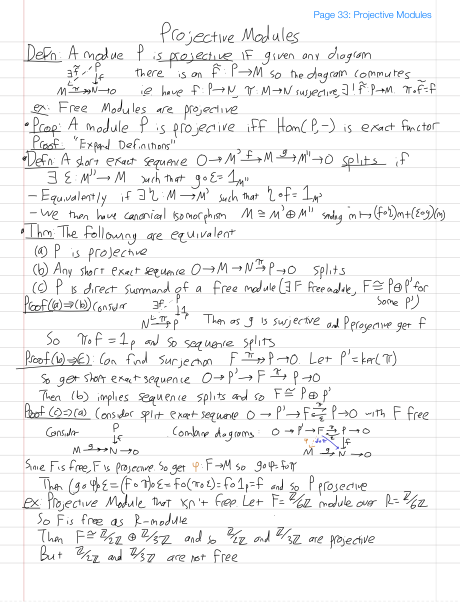 Page 33: Projective Modules
Projective Modules
Defn: A module P is projective if given any diagram
∃f̃ P ↓f M π→ N → 0 there is an f̃: P→M so the diagram commutes
ie have f: P→N, π: M→N surjective, ∃! f̃: P→M π∘f̃=f
ex: Free Modules are projective
• Prop: A module P is projective iff Hom(P,-) is exact functor
Proof "Expand Definitions"
• Defn: A short exact sequence 0→M' f→ M g→ M''→0 splits if
∃ ξ: M''→M such that g∘ξ = 1_M''
- Equivalently if ∃ η: M→M' such that η∘f = 1_M'
- we then have canonical isomorphism M ≅ M'⊕M'' sending m↦(f∘η)m+(ξ∘g)(m)
• Thm: The following are equivalent
(a) P is projective
(b) Any short exact sequence 0→M→N π→ P→0 splits
(c) P is direct summand of a free module (∃ F free module, F ≅ P⊕P' for some P')
Proof (a)⇒(b) Consider ∃f P ↓1 N π→ P→0 Then as g is surjective and P projective get f
So π∘f = 1_P and so sequence splits
Proof (b)⇒(c): Can find surjection F π→ P→0 Let P'=ker(π)
So get short exact sequence 0→P'→F π→ P→0
Then (b) implies sequence splits and so F ≅ P⊕P'
Proof (c)⇒(a) Consider split exact sequence 0→P'→F π→ P→0 with F free
Consider P ↓f M g→ N→0 Combine diagrams: 0→P'→F π→ P→0 φ ↓f M g→ N→0
Since F is free, F is projective so get φ: F→M so g∘φ=f∘π
Then (g∘φ)∘ξ=(f∘π)∘ξ=f∘(π∘ξ)=f∘1_P=f and so P projective
ex Projective Module that isn't free Let F=ℤ/6ℤ module over R=ℤ/6ℤ
So F is free as R-module
Then F ≅ ℤ/2ℤ ⊕ ℤ/3ℤ and so ℤ/2ℤ and ℤ/3ℤ are projective
But ℤ/2ℤ and ℤ/3ℤ are not free